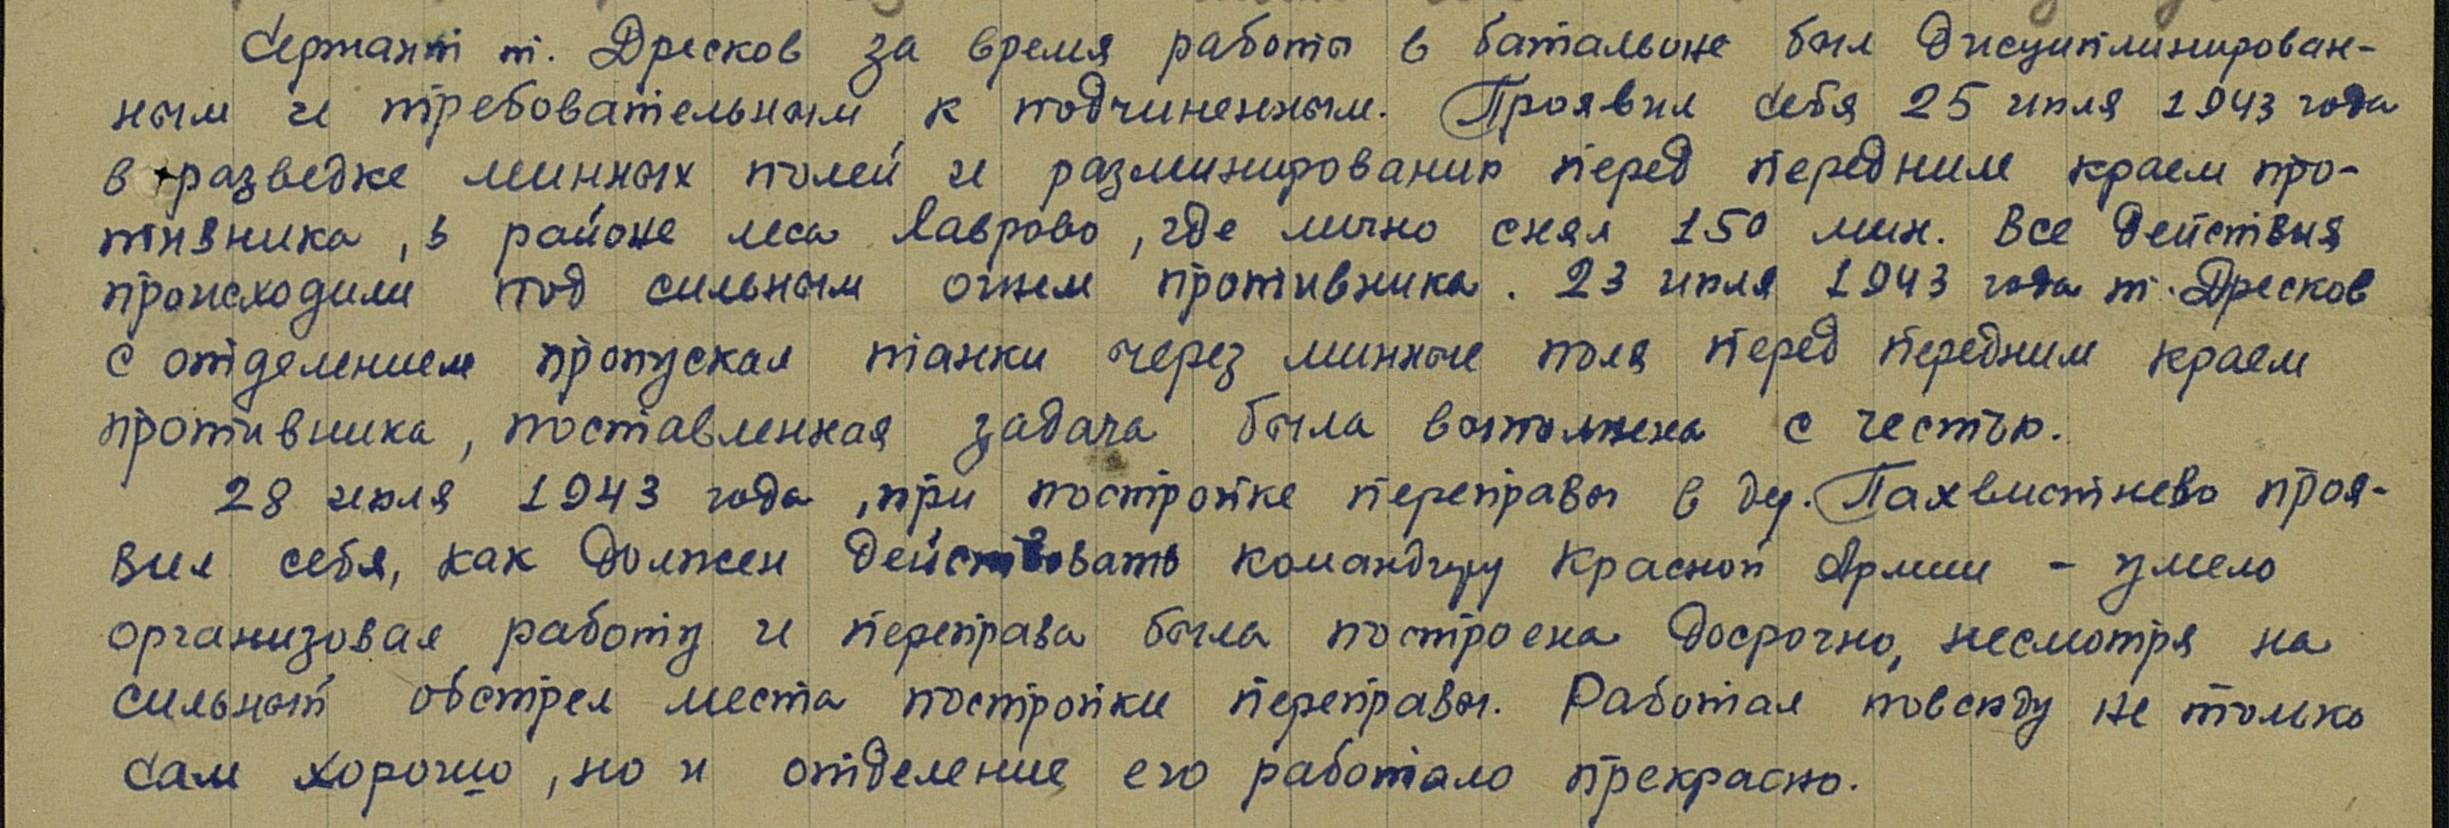 Сержант т. Дресков за время работы в батальоне был дисциплинирован-
ным и требовательным к подчиненным. Проявил себя 25 июля 1943 года
в разведке минных полей и разминированию перед передним краем про-
тивника, в районе леса Лаврово, где лично снял 150 мин. Все действия
происходили под сильным огнем противника. 23 июля 1943 года т. Дресков
с отделением пропускал танки через минные поля перед передним краем
противника, поставленная задача была выполнена с честью.
28 июля 1943 года, при постройке переправы в дер. Пахвистнево проя-
вил себя, как должен действовать командиру Красной Армии - умело
организовал работу и переправа была построена досрочно, несмотря на
сильный обстрел места постройки переправы. Работал повсюду не только
сам хорошо, но и отделение его работало прекрасно.